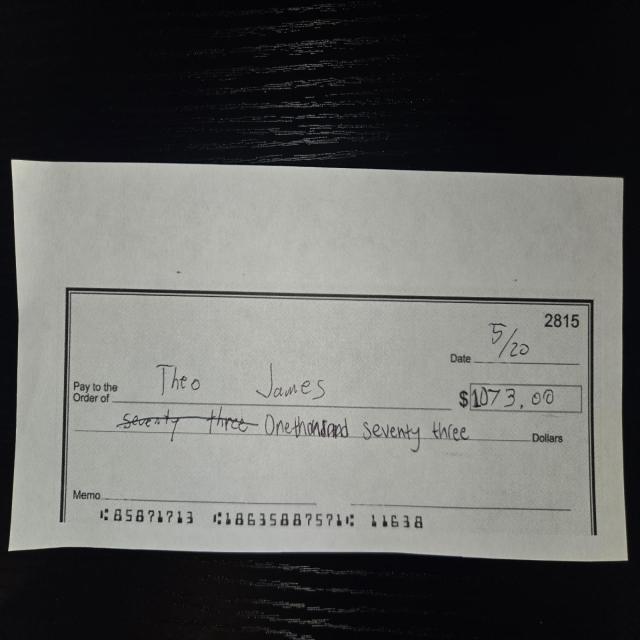 2815
Date 5/20
Pay to the
Order of Theo James $ 1073.00
seventy three One thousand seventy three Dollars
Memo
⑆85871713 ⑆18635887571⑆ 11638